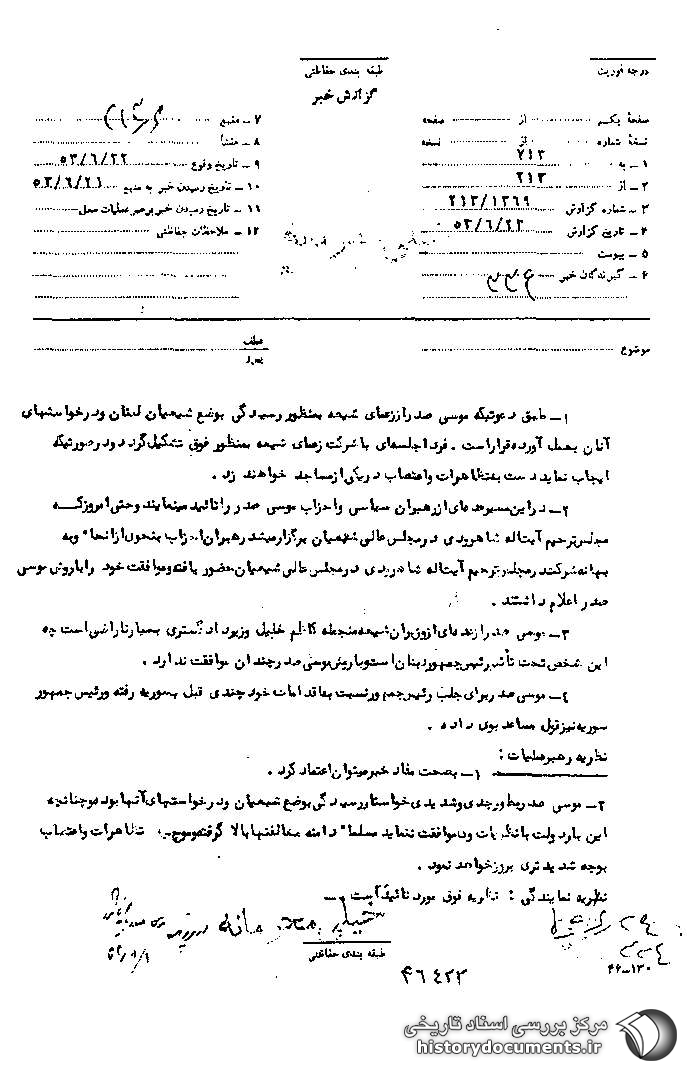 درجه فوریت
طبقه بندی حفاظتی
گزارش خبر
صفحهٔ یکم از صفحه
نسخهٔ شماره از نسخه
۱ ــ به ۷۱۲
۲ ــ از ۲۱۳
۳ ــ شماره گزارش ۲۱۳/۱۳۶۹
۴ ــ تاریخ گزارش ۵۳/۶/۲۳
۵ ــ پیوست
۶ ــ گیرندگان خبر
۷ ــ منبع
۸ ــ منشأ
۹ ــ تاریخ وقوع ۵۳/۶/۲۲
۱۰ ــ تاریخ رسیدن خبر به منبع ۵۳/۶/۲۱
۱۱ ــ تاریخ رسیدن خبر برهبر عملیات محل
۱۲ ــ ملاحظات حفاظتی
موضوع
عطف
پیرو
۱ــ طبق دعوتیکه موسی صدر اززعمای شیعه بمنظور رسیدگی بوضع شیعیان لبنان ودرخواستهای
آنان بعمل آورده قراراست . فردا جلسه‌ای با شرکت زعمای شیعه بمنظور فوق تشکیل گردد ودرصورتیکه
ایجاب نماید دست بتظاهرات واعتصاب دریکی ازمساجد خواهند زد .
۲ــ دراین مسیر عده‌ای ازرهبران سیاسی واحزاب موسی صدر را تائید مینمایند وحتی امروز که
مجلس ترحیم آیت‌اله شاهرودی درمجلس عالی شیعیان برگزار میشد رهبران احزاب بنحوی ازانحاء و به
بهانه شرکت درمجلس ترحیم آیت‌اله شاهرودی درمجلس عالی شیعیان حضور یافته وموافقت خود را با روش موسی
صدر اعلام داشتند .
۳ــ موسی صدر ازعده‌ای ازوزیران شیعه منجمله کاظم خلیل وزیر دادگستری بسیار ناراضی است چه
این شخص تحت تأثیر رئیس جمهور لبنان است وبا روش موسی صدر چندان موافقت ندارد .
۴ــ موسی صدر برای جلب رئیس جمهور نسبت بقا اقدامات خود چندی قبل بسوریه رفته ورئیس جمهور
سوریه نیز قول مساعد بوی داده .
نظریه رهبر عملیات :
۱ــ بصحت مفاد خبر میتوان اعتماد کرد .
۲ــ موسی صدر بطور جدی وشدیدی خواستار رسیدگی بوضع شیعیان ودرخواستهای آنها بوده وچنانچه
این بار دولت با نظریات وی موافقت ننماید مسلماً دامنه مخالفتها بالا گرفته وموج تظاهرات واعتصاب
بوجه شدیدتری بروز خواهد نمود .
نظریه نمایندگی : نظریه فوق مورد تائید است
طبقه بندی حفاظتی
۴۶ــ۱۳۰
۴۶۴۲۳
مرکز بررسی اسناد تاریخی
historydocuments.ir